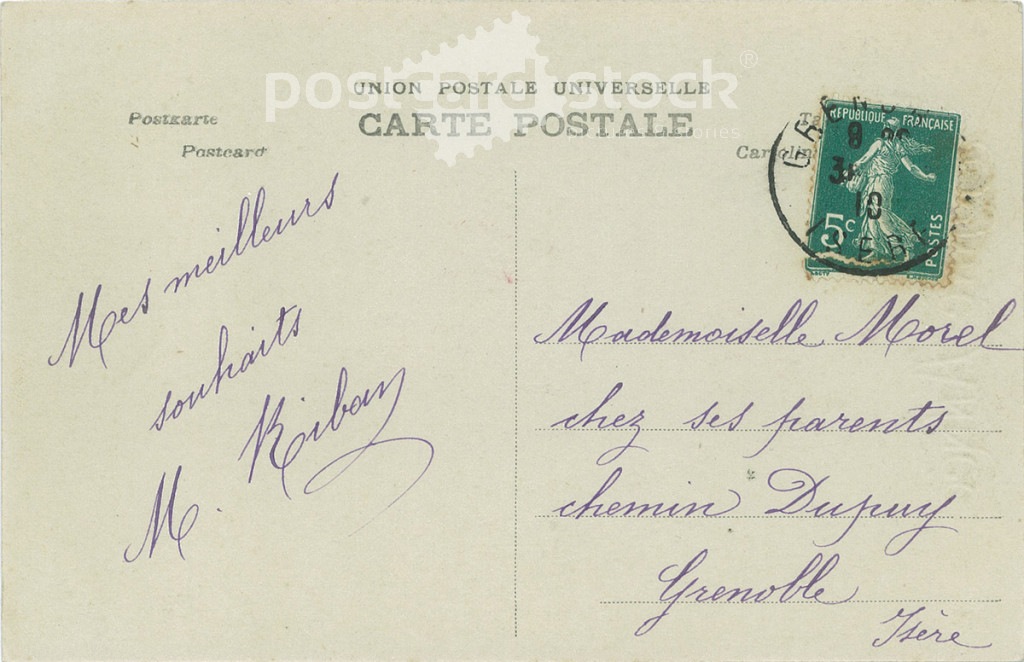 postcard stock®
UNION POSTALE UNIVERSELLE
CARTE POSTALE
Postkarte
Postcard
RÉPUBLIQUE FRANÇAISE
8
10
5c
POSTES
ISERE
Mes meilleurs
souhaits
M.
Mademoiselle Morel
chez ses parents
chemin Dupuy
Grenoble
Isère